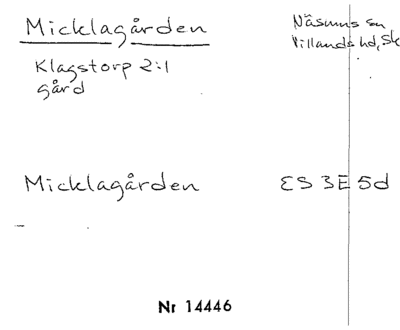 Micklagården
Näsums sn
Villands hd, Sk
Klagstorp 2:1
gård
Micklagården ES 3E 5d
Nr 14446